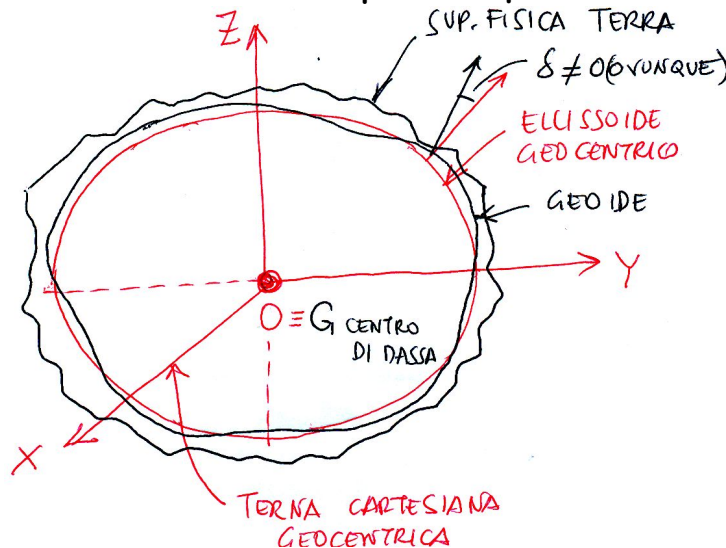 Z
SUP. FISICA TERRA
δ ≠ 0 (OVUNQUE)
ELLISSOIDE
GEOCENTRICO
GEOIDE
Y
O ≡ G CENTRO
DI DASSA
X
TERNA CARTESIANA
GEOCENTRICA